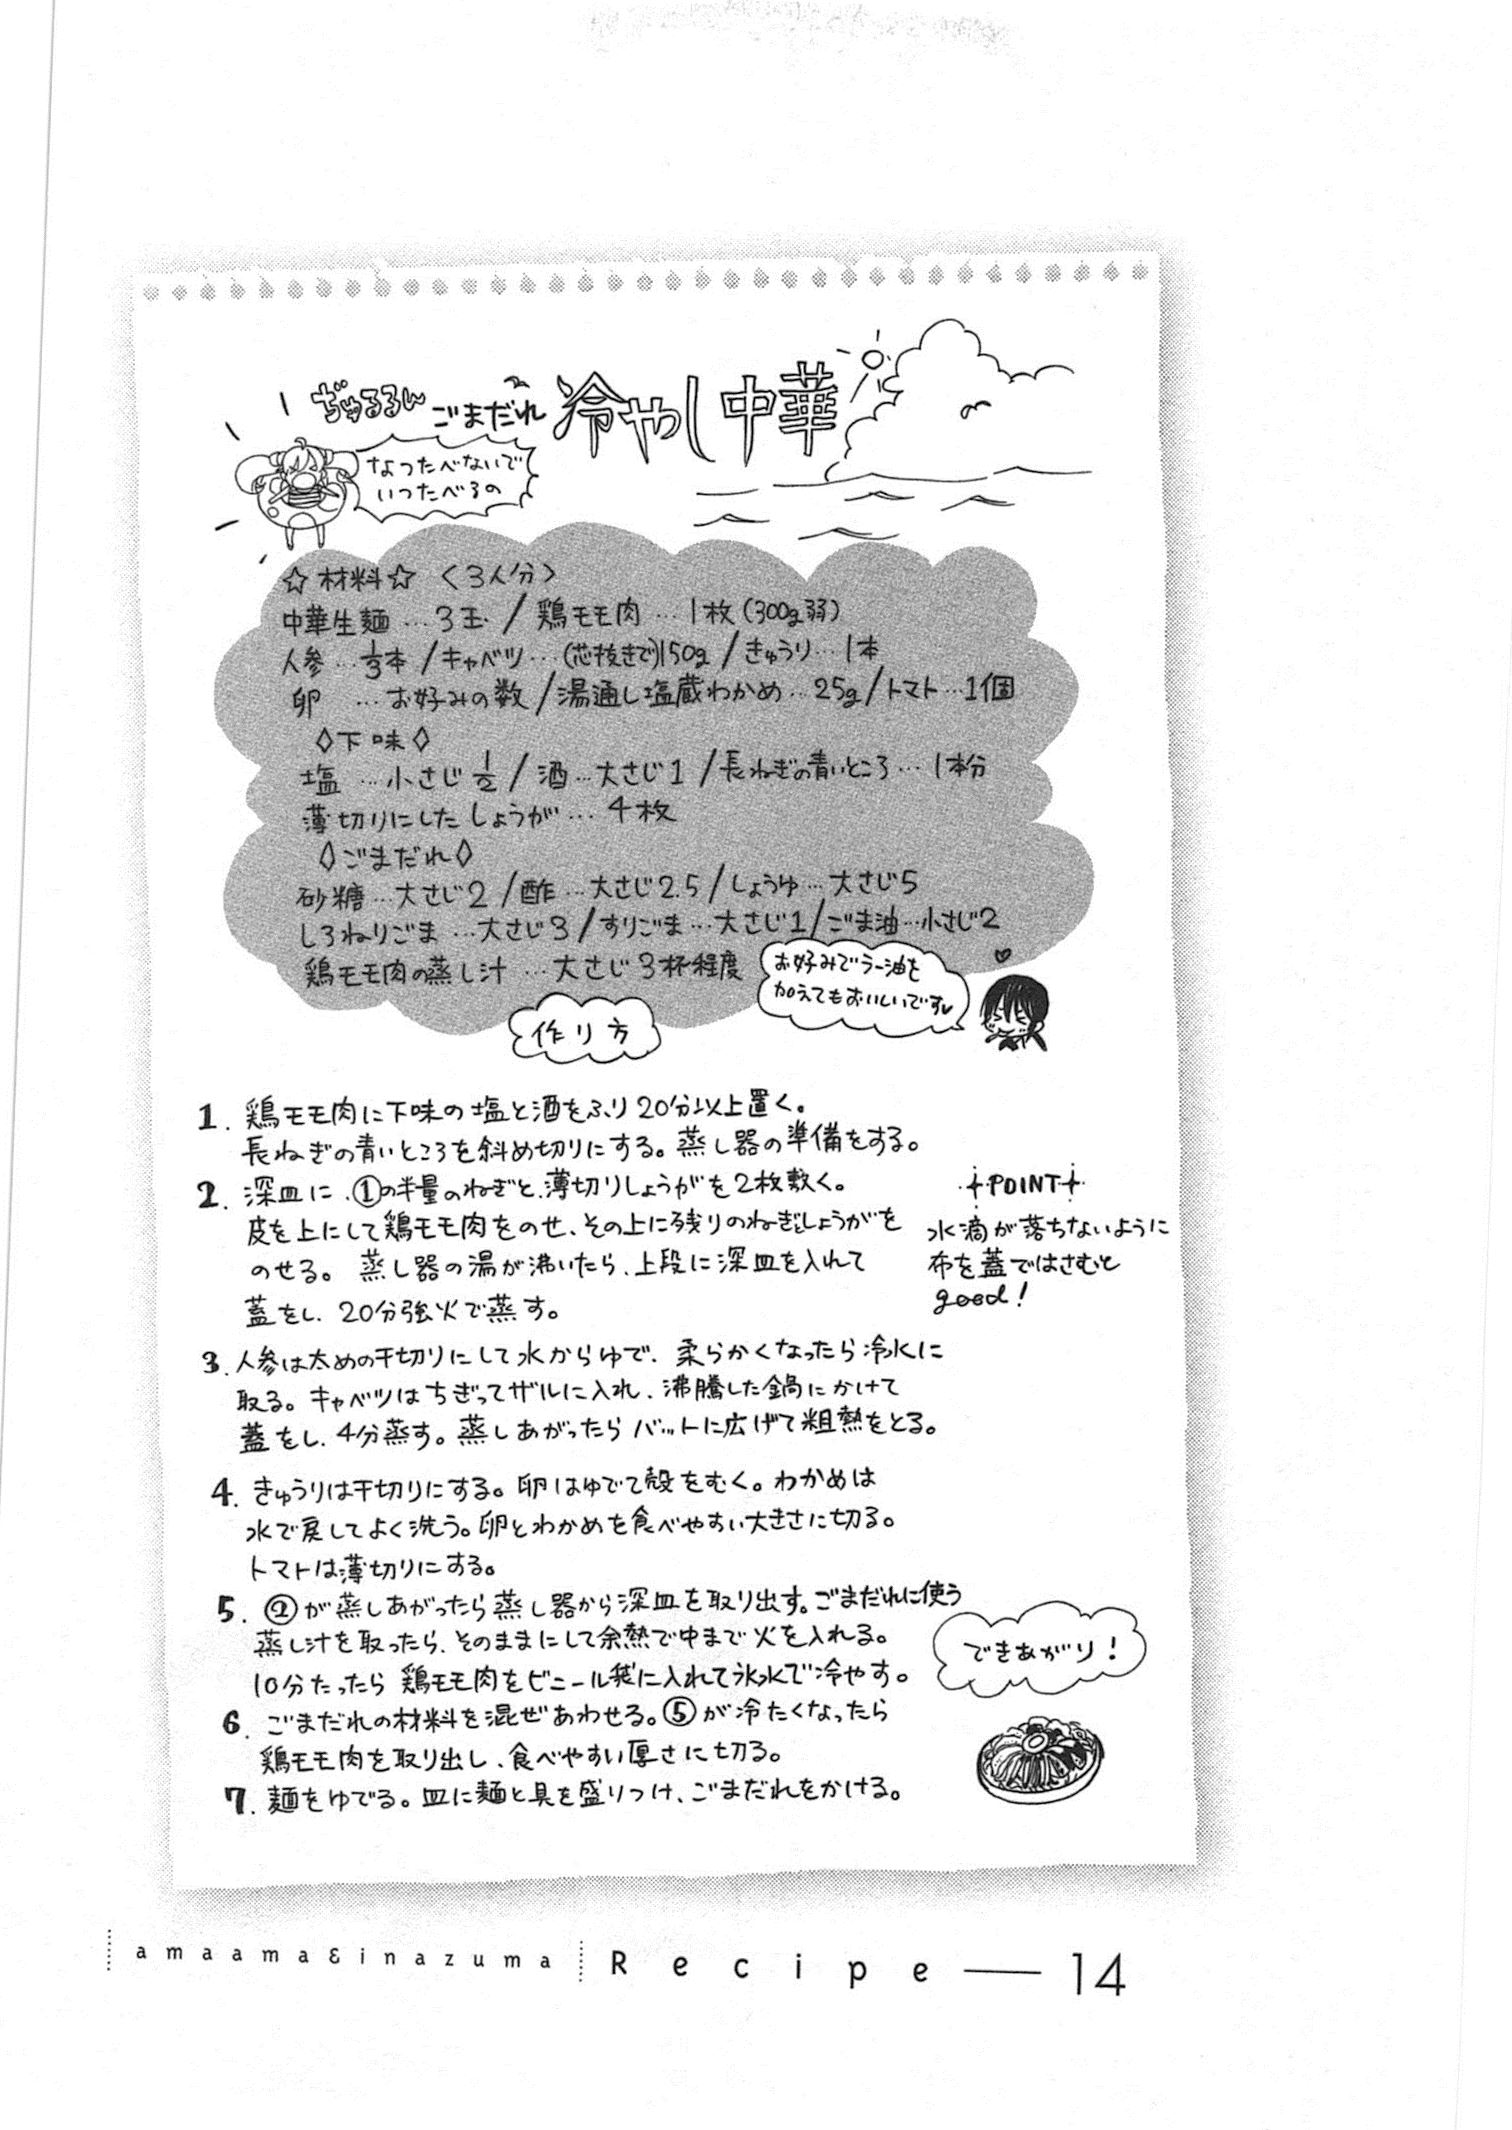 ぢゅるるん ごまだれ 冷やし中華
なつたべないで
いつたべるの
☆材料☆ 〈3人分〉
中華生麺…3玉/鶏モモ肉…1枚(300g弱)
人参…1/3本/キャベツ…(芯抜きで)150g/きゅうり…1本
卵 …お好みの数/湯通し塩蔵わかめ…25g/トマト…1個
◇下味◇
塩 …小さじ1/2/酒…大さじ1/長ねぎの青いところ…1本分
薄切りにしたしょうが…4枚
◇ごまだれ◇
砂糖…大さじ2/酢…大さじ2.5/しょうゆ…大さじ5
しろねりごま…大さじ3/すりごま…大さじ1/ごま油…小さじ2
鶏モモ肉の蒸し汁…大さじ3杯程度
お好みでラー油を
加えてもおいしいです
作り方
1. 鶏モモ肉に下味の塩と酒をふり20分以上置く。
長ねぎの青いところを斜め切りにする。蒸し器の準備をする。
2. 深皿に、①の半量のねぎと、薄切りしょうがを2枚敷く。
皮を上にして鶏モモ肉をのせ、その上に残りのねぎとしょうがを
のせる。蒸し器の湯が沸いたら、上段に深皿を入れて
蓋をし、20分強火で蒸す。
+POINT+
水滴が落ちないように
布を蓋ではさむと
good!
3. 人参は太めの千切りにして水からゆで、柔らかくなったら冷水に
取る。キャベツはちぎってザルに入れ、沸騰した鍋にかけて
蓋をし、4分蒸す。蒸しあがったらバットに広げて粗熱をとる。
4. きゅうりは千切りにする。卵はゆでて殻をむく。わかめは
水で戻してよく洗う。卵とわかめを食べやすい大きさに切る。
トマトは薄切りにする。
5. ②が蒸しあがったら蒸し器から深皿を取り出す。ごまだれに使う
蒸し汁を取ったら、そのままにして余熱で中まで火を入れる。
10分たったら鶏モモ肉をビニール袋に入れて氷水で冷やす。
6. ごまだれの材料を混ぜあわせる。⑤が冷たくなったら
鶏モモ肉を取り出し、食べやすい厚さに切る。
7. 麺をゆでる。皿に麺と具を盛りつけ、ごまだれをかける。
できあがり!
amaama&inazuma Recipe — 14